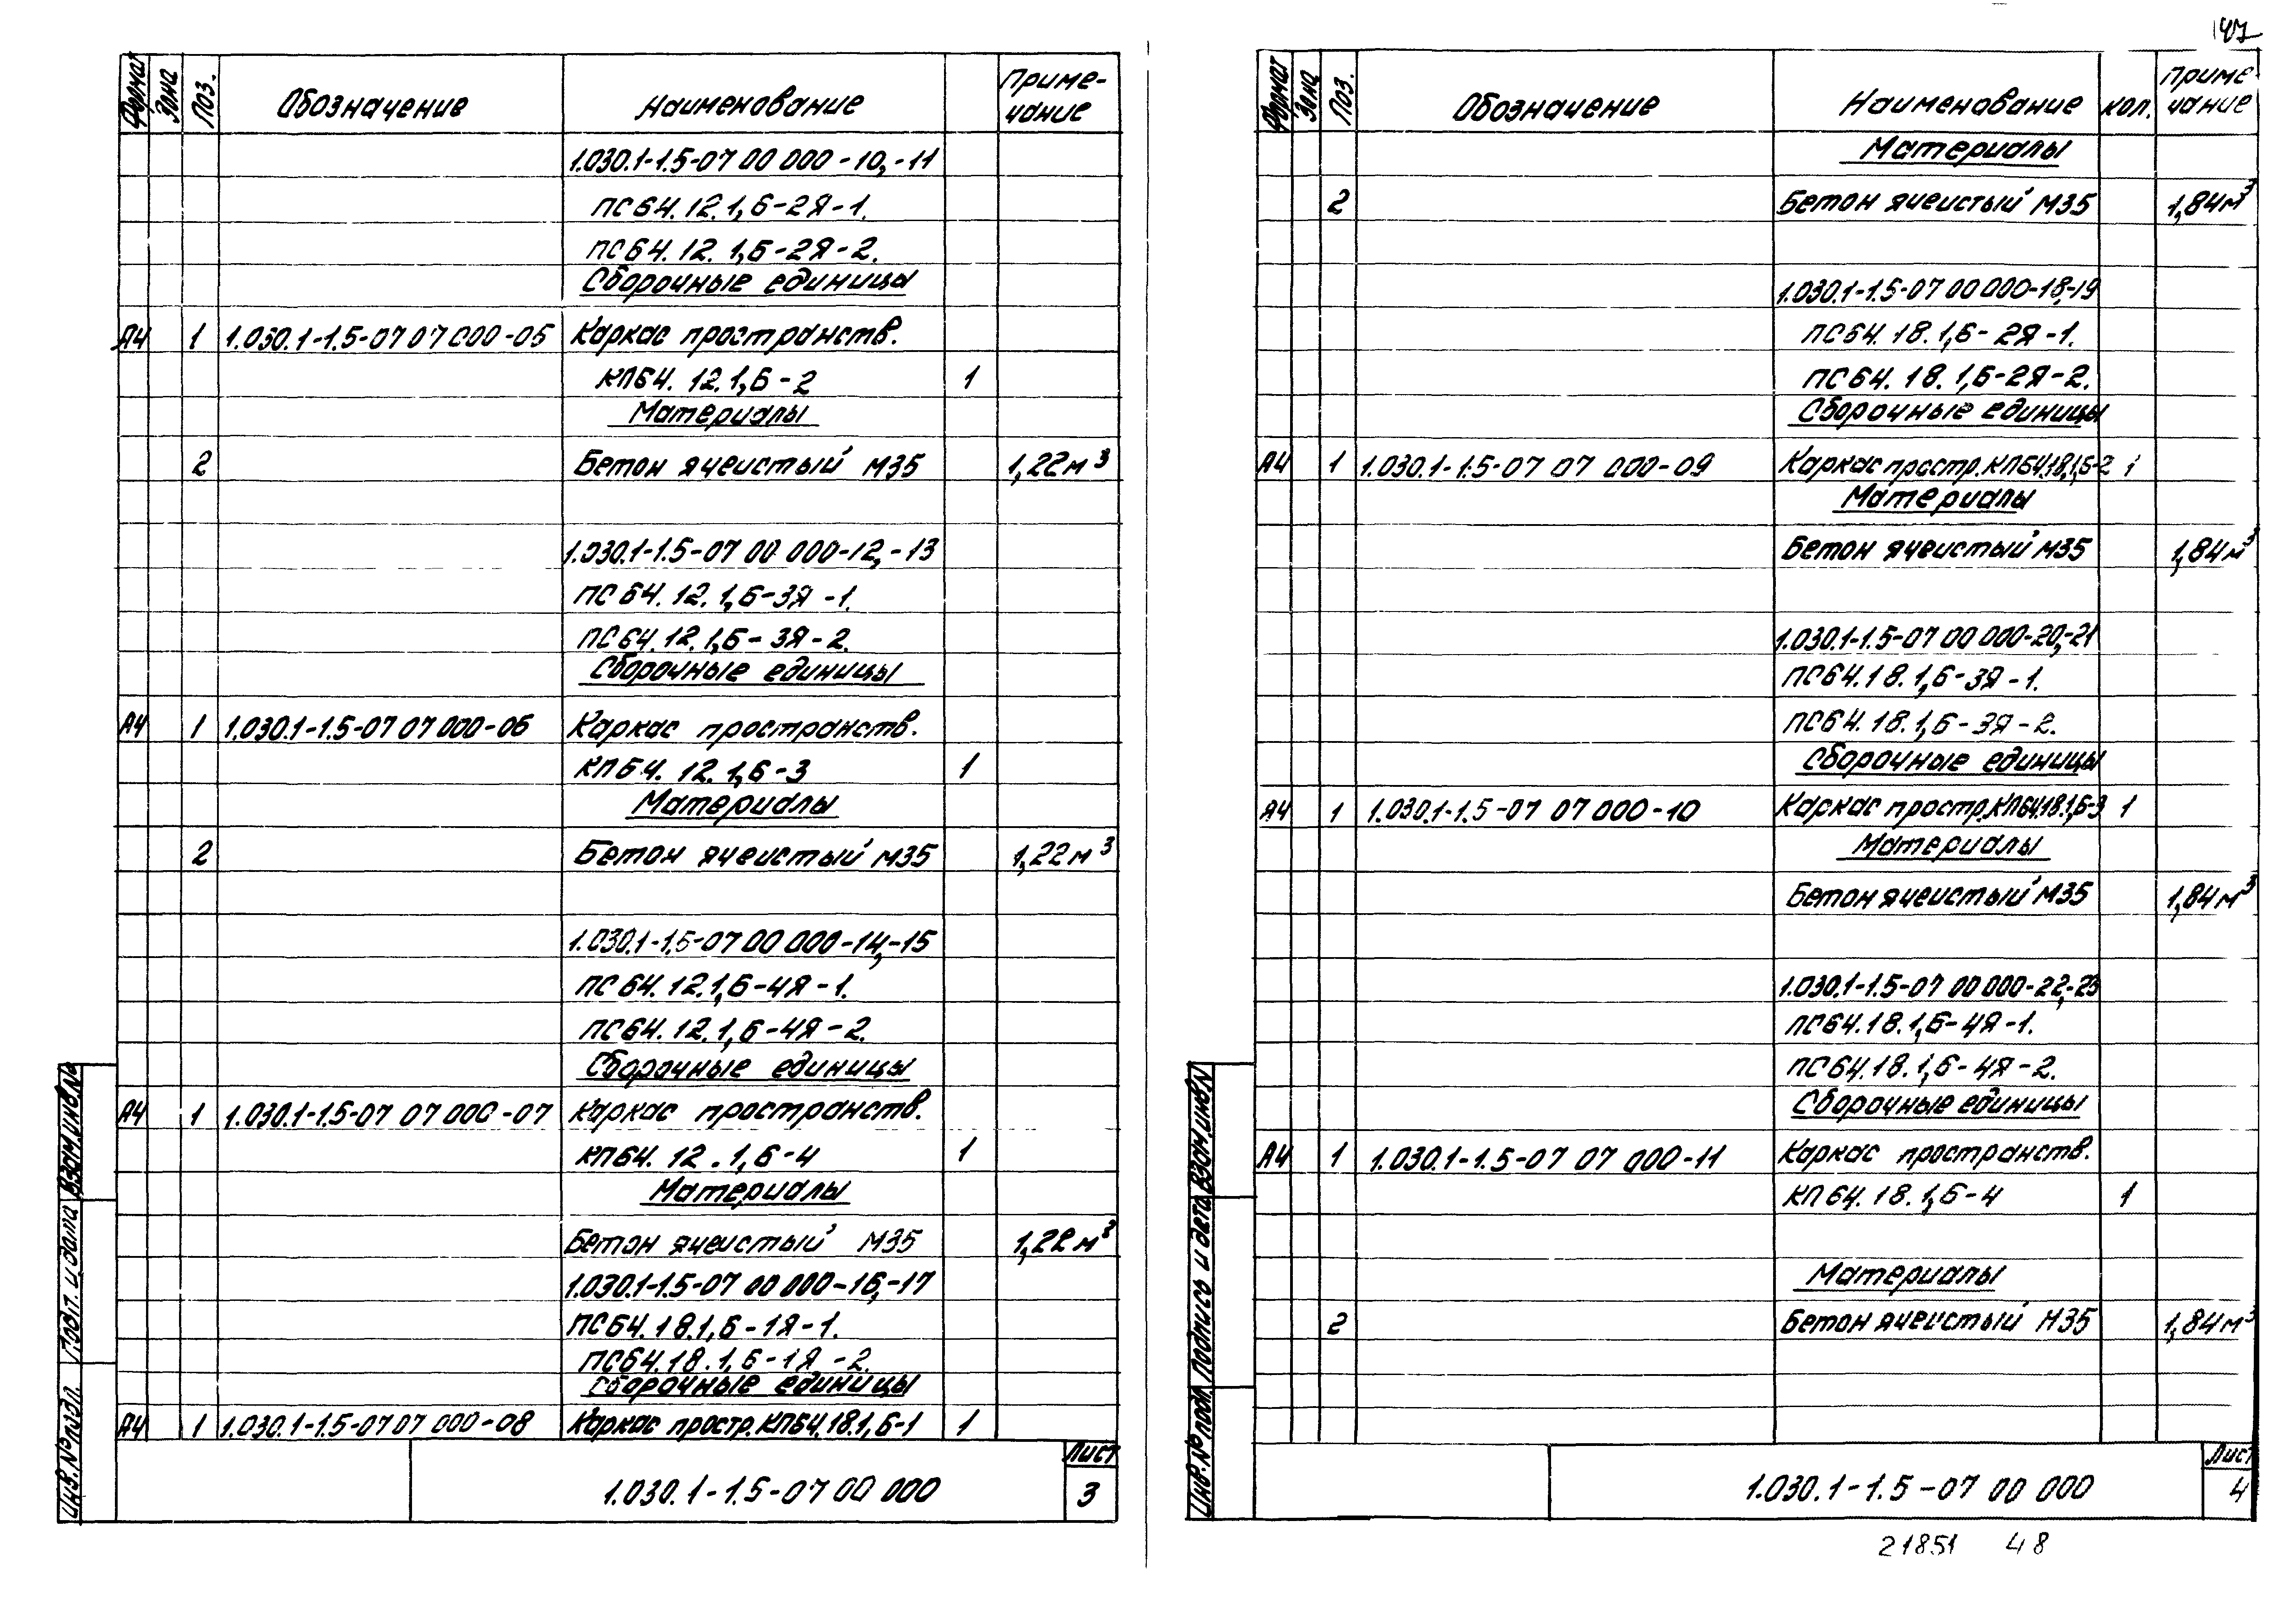 47
Формат Зона Поз. Обозначение Наименование Приме-
чание
1.030.1-1.5-07 00 000-10,-11
ПС64.12.1,6-2Я-1.
ПС64.12.1,6-2Я-2.
Сборочные единицы
А4 1 1.030.1-1.5-07 07 000-05 Каркас пространств.
КП64.12.1,6-2 1
Материалы
2 Бетон ячеистый М35 1,22м³
1.030.1-1.5-07 00 000-12,-13
ПС64.12.1,6-3Я-1.
ПС64.12.1,6-3Я-2.
Сборочные единицы
А4 1 1.030.1-1.5-07 07 000-06 Каркас пространств.
КП64.12.1,6-3 1
Материалы
2 Бетон ячеистый М35 1,22м³
1.030.1-1.5-07 00 000-14,-15
ПС64.12.1,6-4Я-1.
ПС64.12.1,6-4Я-2.
Сборочные единицы
А4 1 1.030.1-1.5-07 07 000-07 Каркас пространств.
КП64.12.1,6-4 1
Материалы
Бетон ячеистый М35 1,22м³
1.030.1-1.5-07 00 000-16,-17
ПС64.18.1,6-1Я-1.
ПС64.18.1,6-1Я-2.
Сборочные единицы
А4 1 1.030.1-1.5-07 07 000-08 Каркас простр.КП64.18.1,6-1 1
1.030.1-1.5-07 00 000
Лист
3
Инв.№подл. Подп. и дата Взам.инв.№
Формат Зона Поз. Обозначение Наименование кол. Приме-
чание
Материалы
2 Бетон ячеистый М35 1,84м³
1.030.1-1.5-07 00 000-18,-19
ПС64.18.1,6-2Я-1.
ПС64.18.1,6-2Я-2.
Сборочные единицы
А4 1 1.030.1-1.5-07 07 000-09 Каркас простр.КП64.18.1,6-2 1
Материалы
Бетон ячеистый М35 1,84м³
1.030.1-1.5-07 00 000-20,-21
ПС64.18.1,6-3Я-1.
ПС64.18.1,6-3Я-2.
Сборочные единицы
А4 1 1.030.1-1.5-07 07 000-10 Каркас простр.КП64.18.1,6-3 1
Материалы
Бетон ячеистый М35 1,84м³
1.030.1-1.5-07 00 000-22,-23
ПС64.18.1,6-4Я-1.
ПС64.18.1,6-4Я-2.
Сборочные единицы
А4 1 1.030.1-1.5-07 07 000-11 Каркас пространств.
КП64.18.1,6-4 1
Материалы
2 Бетон ячеистый М35 1,84м³
1.030.1-1.5-07 00 000
Лист
4
Инв.№подл. Подпись и дата Взам.инв.N
21851 48